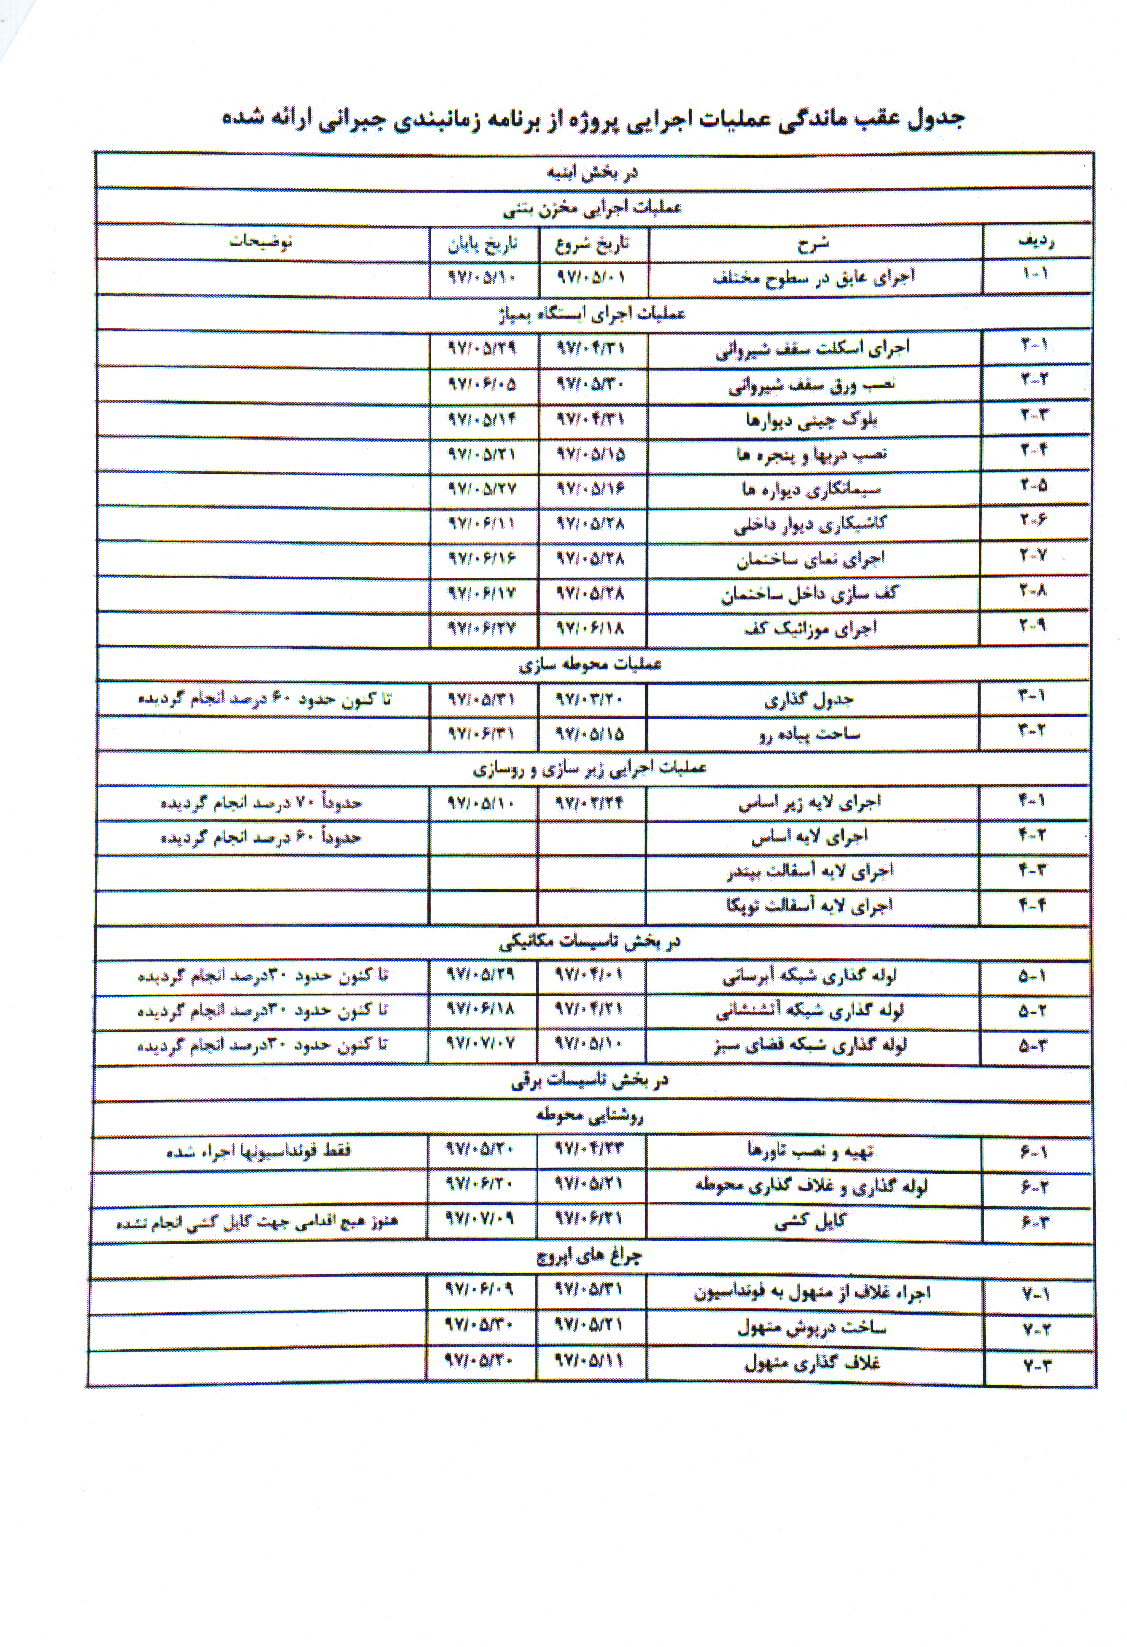 جدول عقب ماندگی عملیات اجرایی پروژه از برنامه زمانبندی جبرانی ارائه شده
در بخش ابنیه
عملیات اجرایی مخزن بتنی
ردیف شرح تاریخ شروع تاریخ پایان توضیحات
۱-۱ اجرای عایق در سطوح مختلف ۹۷/۰۵/۰۱ ۹۷/۰۵/۱۰
عملیات اجرای ایستگاه پمپاژ
۲-۱ اجرای اسکلت سقف شیروانی ۹۷/۰۴/۳۱ ۹۷/۰۵/۲۹
۲-۲ نصب ورق سقف شیروانی ۹۷/۰۵/۳۰ ۹۷/۰۶/۰۵
۲-۳ بلوک چینی دیوارها ۹۷/۰۴/۳۱ ۹۷/۰۵/۱۴
۲-۴ نصب دربها و پنجره ها ۹۷/۰۵/۱۵ ۹۷/۰۵/۲۱
۲-۵ سیمانکاری دیواره ها ۹۷/۰۵/۱۶ ۹۷/۰۵/۲۷
۲-۶ کاشیکاری دیوار داخلی ۹۷/۰۵/۲۸ ۹۷/۰۶/۱۱
۲-۷ اجرای نمای ساختمان ۹۷/۰۵/۲۸ ۹۷/۰۶/۱۶
۲-۸ کف سازی داخل ساختمان ۹۷/۰۵/۲۸ ۹۷/۰۶/۱۷
۲-۹ اجرای موزائیک کف ۹۷/۰۶/۱۸ ۹۷/۰۶/۲۷
عملیات محوطه سازی
۳-۱ جدول گذاری ۹۷/۰۳/۲۰ ۹۷/۰۵/۳۱ تا کنون حدود ۶۰ درصد انجام گردیده
۳-۲ ساخت پیاده رو ۹۷/۰۵/۱۵ ۹۷/۰۶/۳۱
عملیات اجرایی زیر سازی و روسازی
۴-۱ اجرای لایه زیر اساس ۹۷/۰۲/۲۴ ۹۷/۰۵/۱۰ حدوداً ۷۰ درصد انجام گردیده
۴-۲ اجرای لایه اساس حدوداً ۶۰ درصد انجام گردیده
۴-۳ اجرای لایه آسفالت بیندر
۴-۴ اجرای لایه آسفالت توپکا
در بخش تاسیسات مکانیکی
۵-۱ لوله گذاری شبکه آبرسانی ۹۷/۰۴/۰۱ ۹۷/۰۵/۲۹ تا کنون حدود ۳۰درصد انجام گردیده
۵-۲ لوله گذاری شبکه آتشنشانی ۹۷/۰۴/۲۱ ۹۷/۰۶/۱۸ تا کنون حدود ۳۰درصد انجام گردیده
۵-۳ لوله گذاری شبکه فضای سبز ۹۷/۰۵/۱۰ ۹۷/۰۷/۰۷ تا کنون حدود ۳۰درصد انجام گردیده
در بخش تاسیسات برقی
روشنایی محوطه
۶-۱ تهیه و نصب تاورها ۹۷/۰۴/۲۳ ۹۷/۰۵/۲۰ فقط فونداسیونها اجراء شده
۶-۲ لوله گذاری و غلاف گذاری محوطه ۹۷/۰۵/۲۱ ۹۷/۰۶/۲۰
۶-۳ کابل کشی ۹۷/۰۶/۲۱ ۹۷/۰۷/۰۹ هنوز هیچ اقدامی جهت کابل کشی انجام نشده
چراغ های اپروچ
۷-۱ اجراء غلاف از منهول به فونداسیون ۹۷/۰۵/۳۱ ۹۷/۰۶/۰۹
۷-۲ ساخت درپوش منهول ۹۷/۰۵/۲۱ ۹۷/۰۵/۳۰
۷-۳ غلاف گذاری منهول ۹۷/۰۵/۱۱ ۹۷/۰۵/۲۰